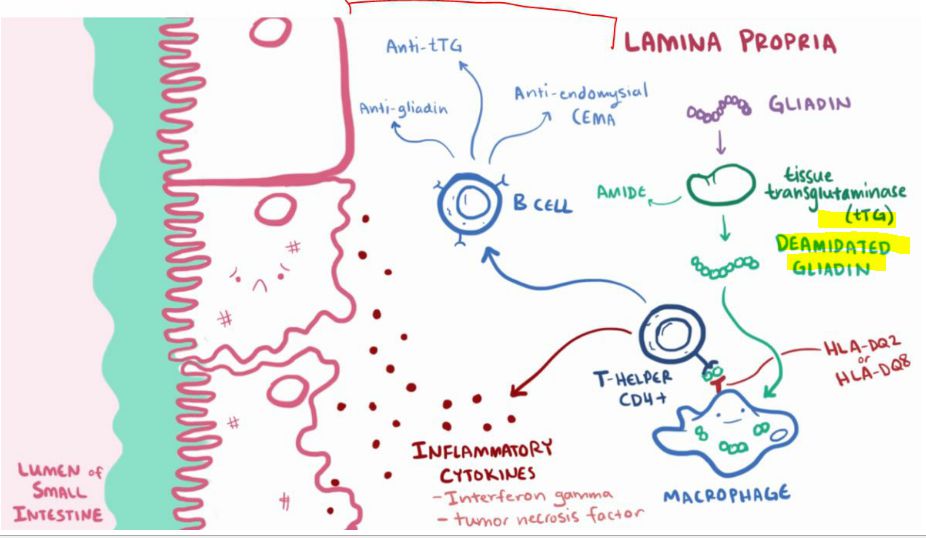 LAMINA PROPRIA
Anti-tTG
Anti-gliadin
Anti-endomysial
CEMA
B CELL
GLIADIN
tissue
transglutaminase
(tTG)
AMIDE
DEAMIDATED
GLIADIN
HLA-DQ2
or
HLA-DQ8
T-HELPER
CD4+
MACROPHAGE
INFLAMMATORY
CYTOKINES
- Interferon gamma
- tumor necrosis factor
#
#
#
#
LUMEN of
SMALL
INTESTINE